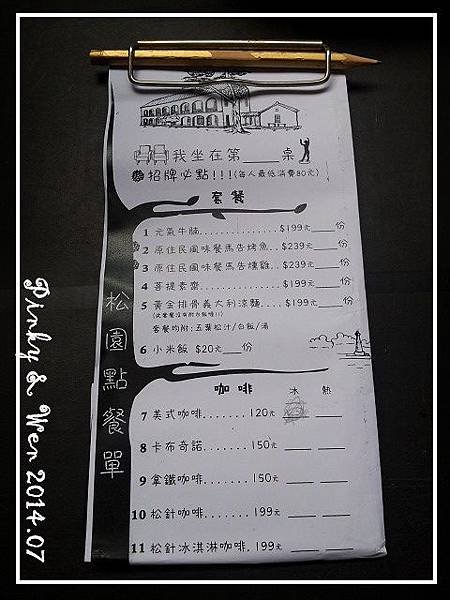 我坐在第____桌
招牌必點!!!(每人最低消費80元)
套餐
1 元氣牛腩..............$199元____份
2 原住民風味餐馬告烤魚..$239元____份
3 原住民風味餐馬告燻雞..$239元____份
4 菩提素齋..............$199元____份
5 黃金排骨義大利涼麵....$199元____份
套餐均附:五葉松汁/白飯/湯
6 小米飯 $20元____份
咖啡
冰 熱
7 美式咖啡.......120元
8 卡布奇諾.......150元
9 拿鐵咖啡.......150元
10 松針咖啡.......199元
11 松針冰淇淋咖啡.199元
松園點餐單
Pinky & Wen 2014.07